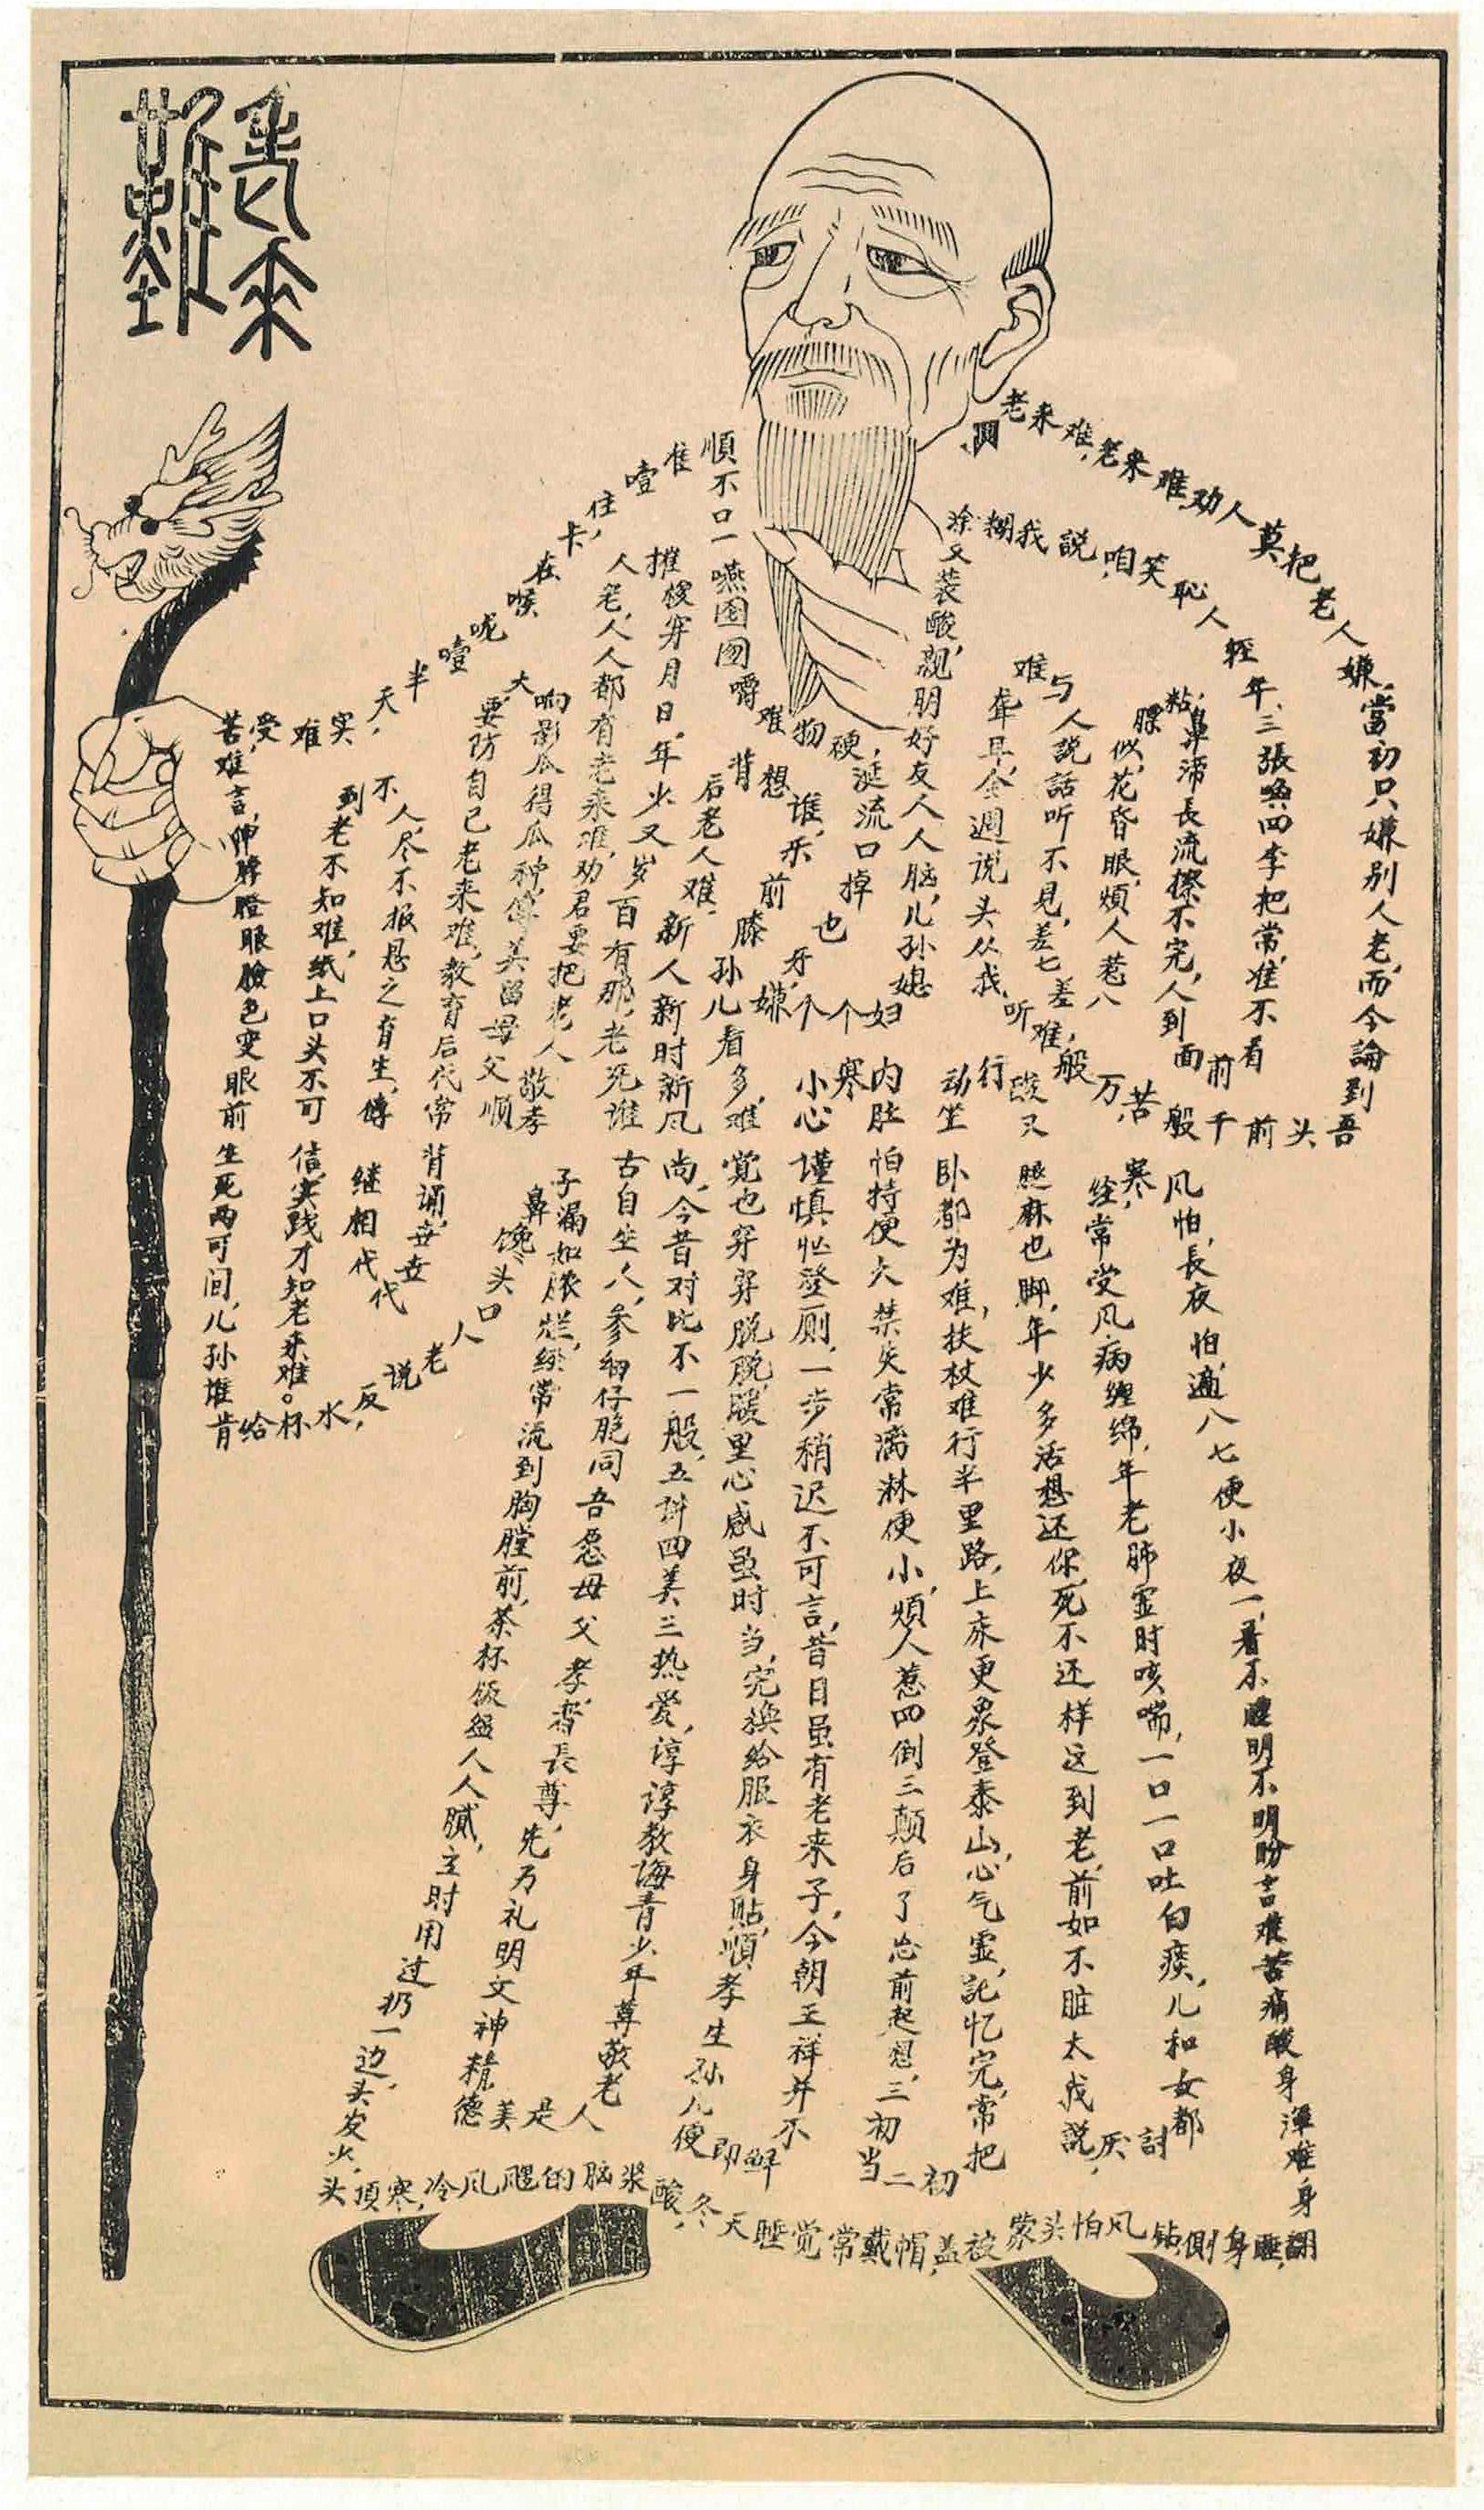 老来難
老来难，老来难，劝人莫把老人嫌，
當初只嫌别人老，而今論到吾头前，
千般苦，万般难，听我从头说週全，
耳聋难与人説話，听不見，差七差八惹人煩，
眼昏花，似膘粘，鼻涕長流擦不完，
人到面前看不准，常把李四喚張三，
年輕人，恥笑咱，説我糊涂又装酸，
親朋好友人人脑，儿孙媳妇个个嫌，
牙也掉，口流涎，硬物难嚼囫囵嚥，
一口不順准噎住，卡在喉咙噎半天，
实难受，苦难言，伸脖瞪眼臉色变，
眼前生死两可间，儿孙谁肯给杯水，反说老人口头馋，
鼻子漏，如脓烂，经常流到胸膛前，
茶杯饭盔人人腻，立时用过扔一边，
头发少，头頂寒，冷风飕的脑浆酸，
冬天睡觉常戴帽，盖被蒙头怕风钻，
侧身睡，翻身难，渾身酸痛苦难言，
盼明不明睡不着，一夜小便七八遍，
怕夜長，怕风寒，经常受风病缠绵，
年老肺虚时咳喘，一口一口吐白痰，
儿和女都討厌，説我太脏不如前，
老到这样还不死，你还想活多少年，
脚也麻，腿又酸，行动坐卧都为难，
扶杖难行半里路，上床更象登泰山，
心气虚，記忆完，常把初二当初三，
想起前忘了后，颠三倒四惹人煩，
小便淋漓常失禁，大便特怕肚内寒，
小心谨慎登厕，一步稍迟不可言，
昔日虽有老来子，今朝王祥并不鲜，
即便儿孙生孝順，贴身衣服给换完，
当时虽感心里暖，脱脱穿穿也覚难，
多看儿孙膝前乐，谁想背后老人难，
新人新时新风尚，今昔对比不一般，
五讲四美三热爱，谆谆教诲青少年，
尊敬老人是美德，精神文明礼乃先，
尊長者，孝父母，愿吾同胞仔细参，
人生自古谁死老，那有百岁又少年，
日月穿梭摧人老，人人都有老来难，
劝君要把老人敬，孝順父母留美传，
种瓜得瓜影响大，要防自己老来难，
教育后代常背诵，世世代代相继传，
生育之恩报不尽，人不到老不知难，
纸上口头不可信，实践才知老来难。